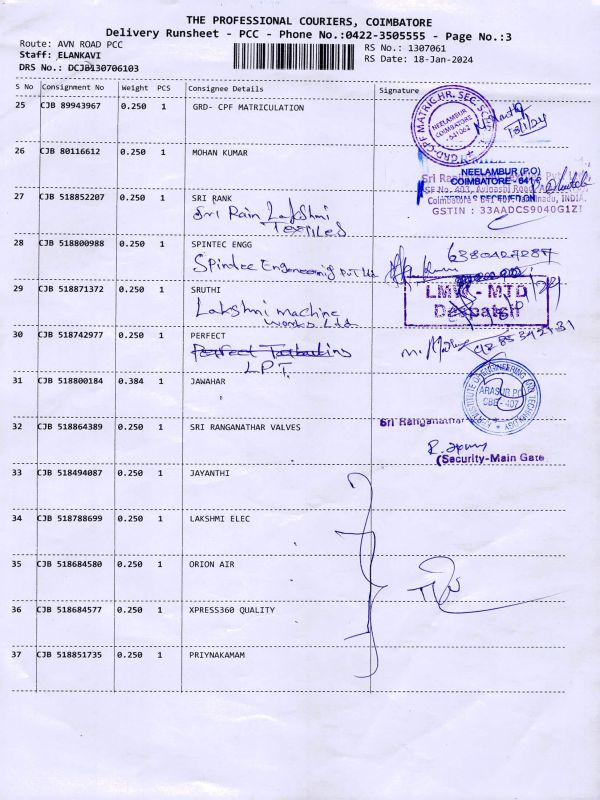 THE PROFESSIONAL COURIERS, COIMBATORE
Delivery Runsheet - PCC - Phone No.:0422-3505555 - Page No.:3
Route: AVN ROAD PCC RS No.: 1307061
Staff: ELANKAVI RS Date: 18-Jan-2024
DRS No.: DCJB130706103
S No Consignment No Weight PCS Consignee Details Signature
25 CJB 89943967 0.250 1 GRD- CPF MATRICULATION
GRD-CPF MATRIC.HR. SEC. SCHOOL
NEELAMBUR
COIMBATORE
641 062
26 CJB 80116612 0.250 1 MOHAN KUMAR
NEELAMBUR (P.O)
COIMBATORE - 641
27 CJB 518852207 0.250 1 SRI RANK
Sri Rain Lakshmi
Textiles
SF No. 403, Avinashi Road
Coimbatore - 641 Tamilnadu, INDIA.
GSTIN : 33AADCS9040G1Z1
28 CJB 518800988 0.250 1 SPINTEC ENGG
Spintec Engineering PVT Ltd
29 CJB 518871372 0.250 1 SRUTHI
Lakshmi Machine
Works Ltd
LMW - MTD
Despatch
30 CJB 518742977 0.250 1 PERFECT
L.P.T.
31 CJB 518800184 0.384 1 JAWAHAR
ARASUR PO
CBE - 407
32 CJB 518864389 0.250 1 SRI RANGANATHAR VALVES
Sri Ranganathar
(Security-Main Gate
33 CJB 518494087 0.250 1 JAYANTHI
34 CJB 518788699 0.250 1 LAKSHMI ELEC
35 CJB 518684580 0.250 1 ORION AIR
36 CJB 518684577 0.250 1 XPRESS360 QUALITY
37 CJB 518851735 0.250 1 PRIYNAKAMAM